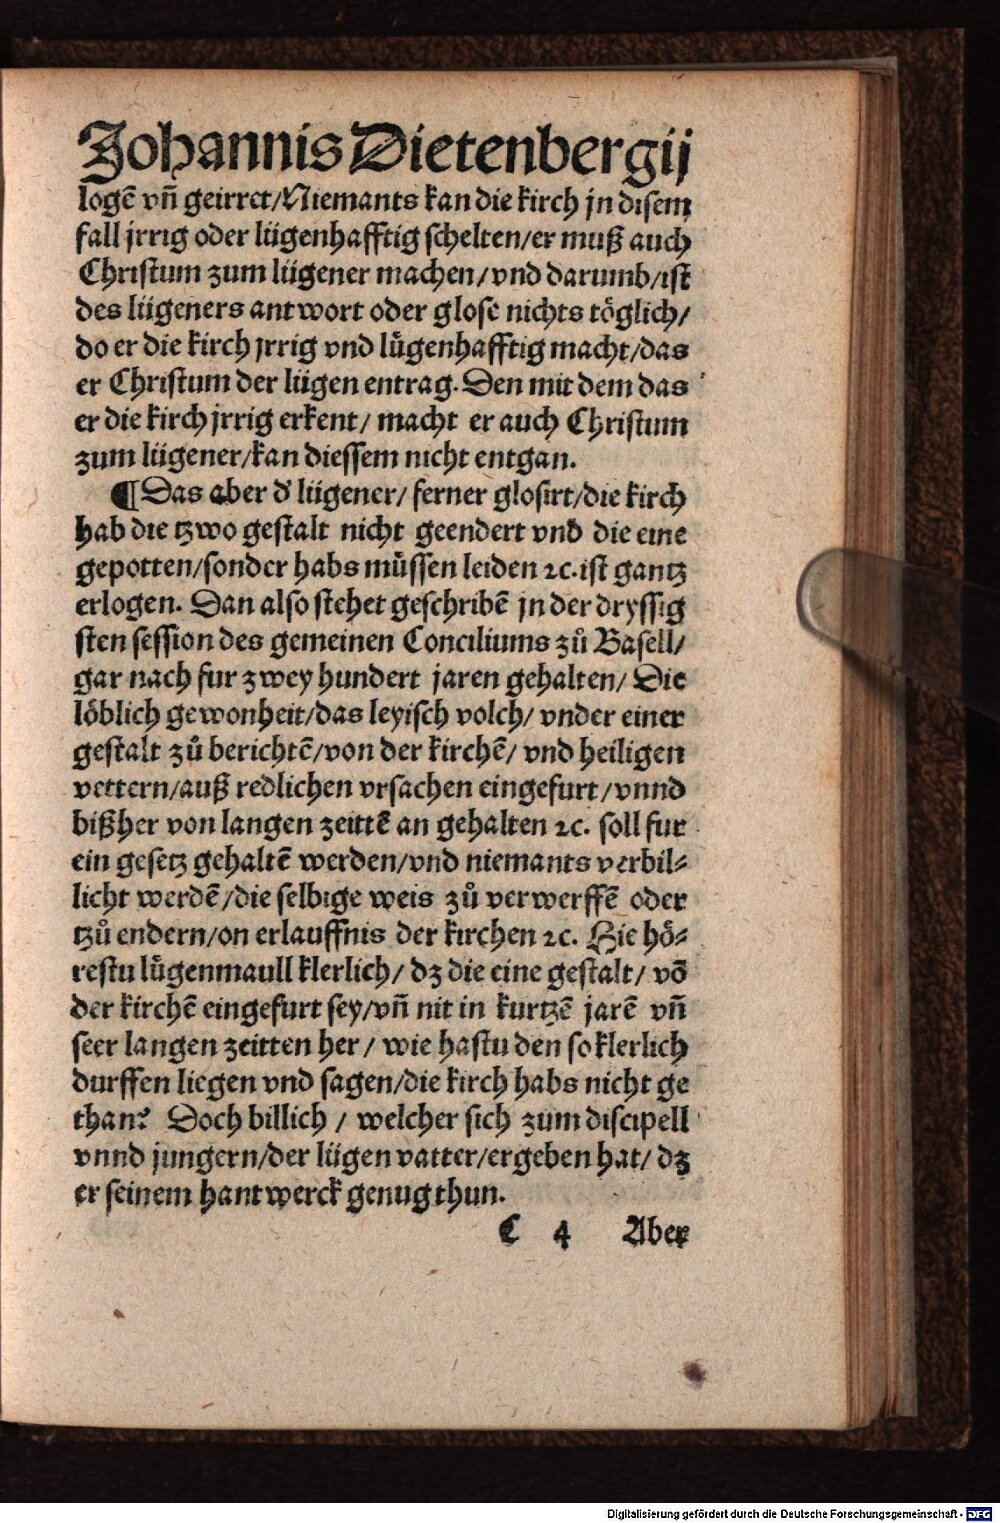 Johannis Dietenbergij
logē vn̄ geirret/Niemants kan die kirch jn disem
fall jrrig oder lügenhafftig schelten/er muß auch
Christum zum lügener machen/vnd darumb/ist
des lügeners antwort oder glose nichts töglich/
do er die kirch jrrig vnd lůgenhafftig macht/das
er Christum der lügen entrag. Den mit dem das
er die kirch jrrig erkent/ macht er auch Christum
zum lügener/kan diessem nicht entgan.
¶ Das aber d' lügener/ ferner glosirt/die kirch
hab die tzwo gestalt nicht geendert vnd die eine
gepotten/sonder habs müssen leiden ⁊c. ist gantz
erlogen. Dan also stehet geschribē jn der dryssig
sten session des gemeinen Conciliums zů Basell/
gar nach fur zwey hundert jaren gehalten/ Die
löblich gewonheit/das leyisch volch/ vnder einer
gestalt zů berichtē/von der kirchē/ vnd heiligen
vettern/auß redlichen vrsachen eingefurt/vnnd
bißher von langen zeittē an gehalten ⁊c. soll fur
ein gesetz gehaltē werden/vnd niemants verbil⸗
licht werdē/die selbige weis zů verwerffē oder
tzů endern/on erlauffnis der kirchen ⁊c. Hie hö⸗
restu lügenmaull klerlich/ dz die eine gestalt/ vō
der kirchē eingefurt sey/vn̄ nit in kurtzē jarē vn̄
seer langen zeitten her/ wie hastu den so klerlich
durffen liegen vnd sagen/die kirch habs nicht ge
than? Doch billich / welcher sich zum discipell
vnnd jungern/der lügen vatter/ergeben hat/ dz
er seinem hantwerck genug thun.
C 4 Aber
Digitalisierung gefördert durch die Deutsche Forschungsgemeinschaft - DFG